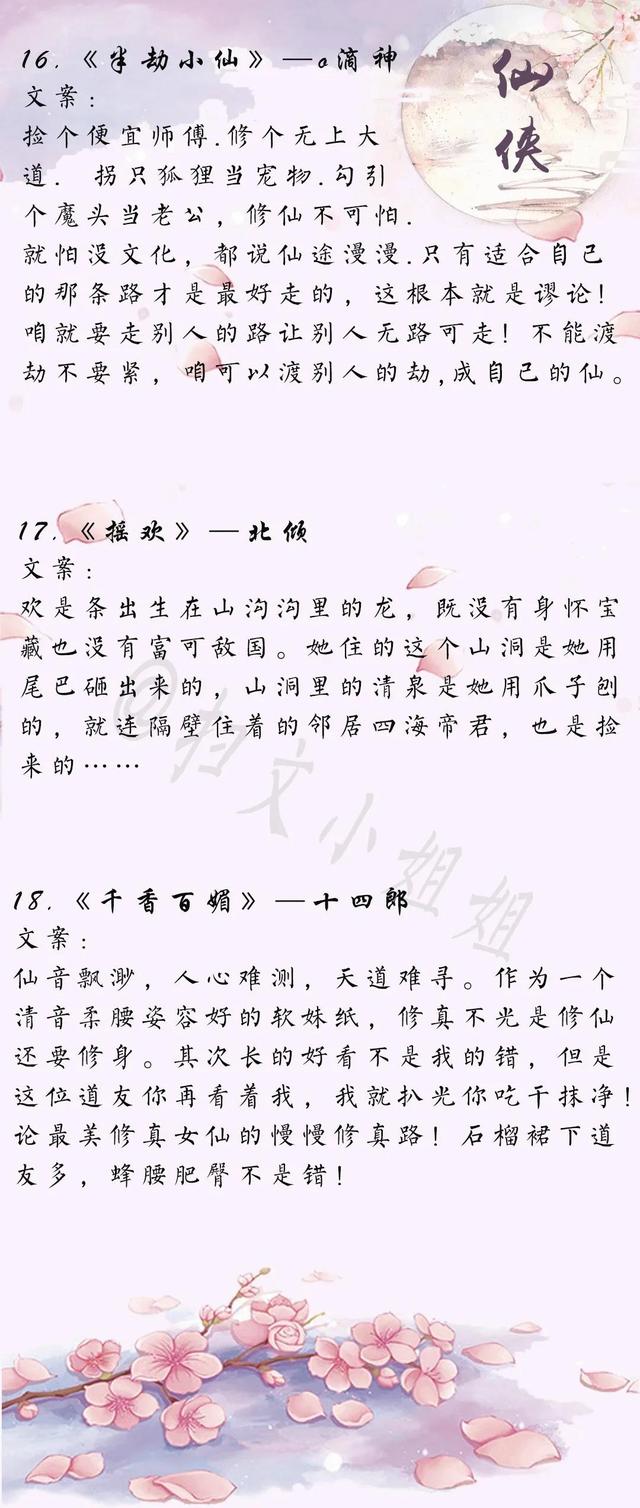 仙侠
16.《半劫小仙》—a滴神
文案：
捡个便宜师傅.修个无上大
道. 拐只狐狸当宠物.勾引
个魔头当老公，修仙不可怕.
就怕没文化，都说仙途漫漫.只有适合自己
的那条路才是最好走的，这根本就是谬论！
咱就要走别人的路让别人无路可走！不能渡
劫不要紧，咱可以渡别人的劫,成自己的仙。
17.《摇欢》—北倾
文案：
欢是条出生在山沟沟里的龙，既没有身怀宝
藏也没有富可敌国。她住的这个山洞是她用
尾巴砸出来的，山洞里的清泉是她用爪子刨
的，就连隔壁住着的邻居四海帝君，也是捡
来的……
@扫文小姐姐
18.《千香百媚》—十四郎
文案：
仙音飘渺，人心难测，天道难寻。作为一个
清音柔腰姿容好的软妹纸，修真不光是修仙
还要修身。其次长的好看不是我的错，但是
这位道友你再看着我，我就扒光你吃干抹净！
论最美修真女仙的慢慢修真路！石榴裙下道
友多，蜂腰肥臀不是错！